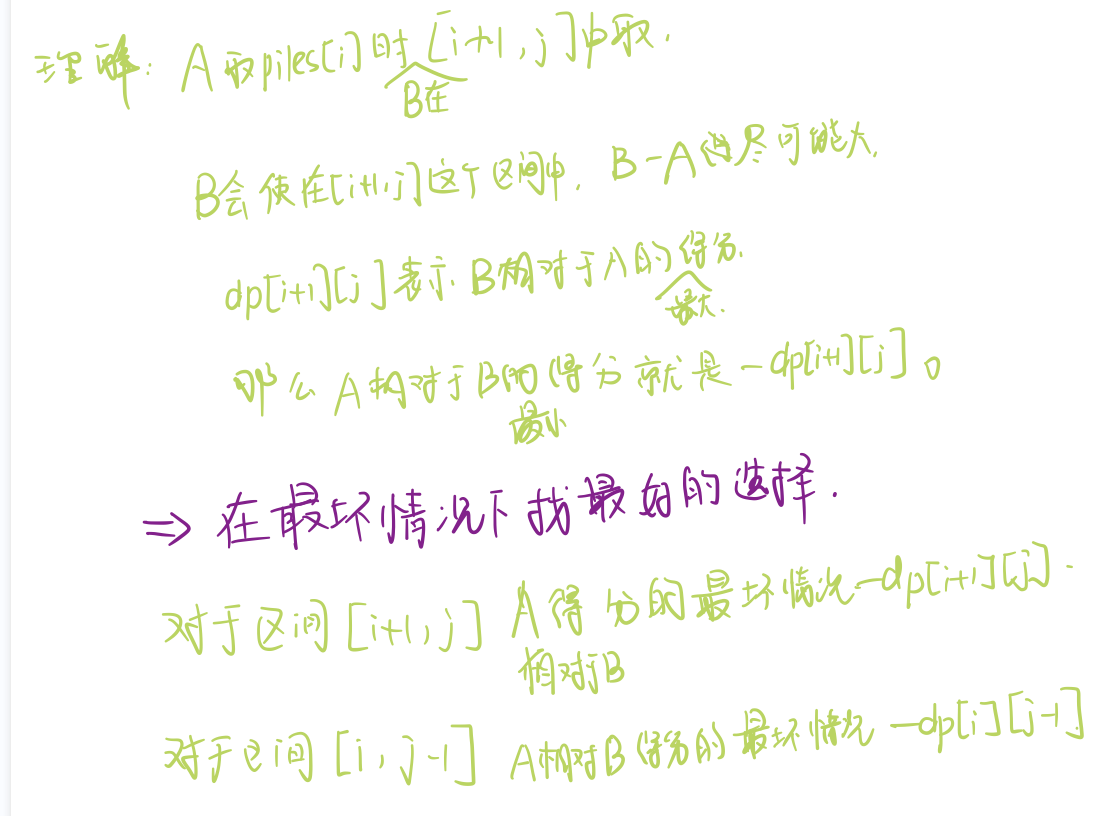 理解: A取piles[i]时 B在[i+1, j]中取.
B会使在[i+1,j]这个区间中, B-A得尽可能大.
dp[i+1][j]表示B相对于A的最大得分.
那么A相对于B的最小得分就是-dp[i+1][j]。
⇒ 在最坏情况下找最好的选择.
对于区间[i+1,j] A相对于B得分的最坏情况-dp[i+1][j].
对于区间[i, j-1] A相对B得分的最坏情况 -dp[i][j-1]